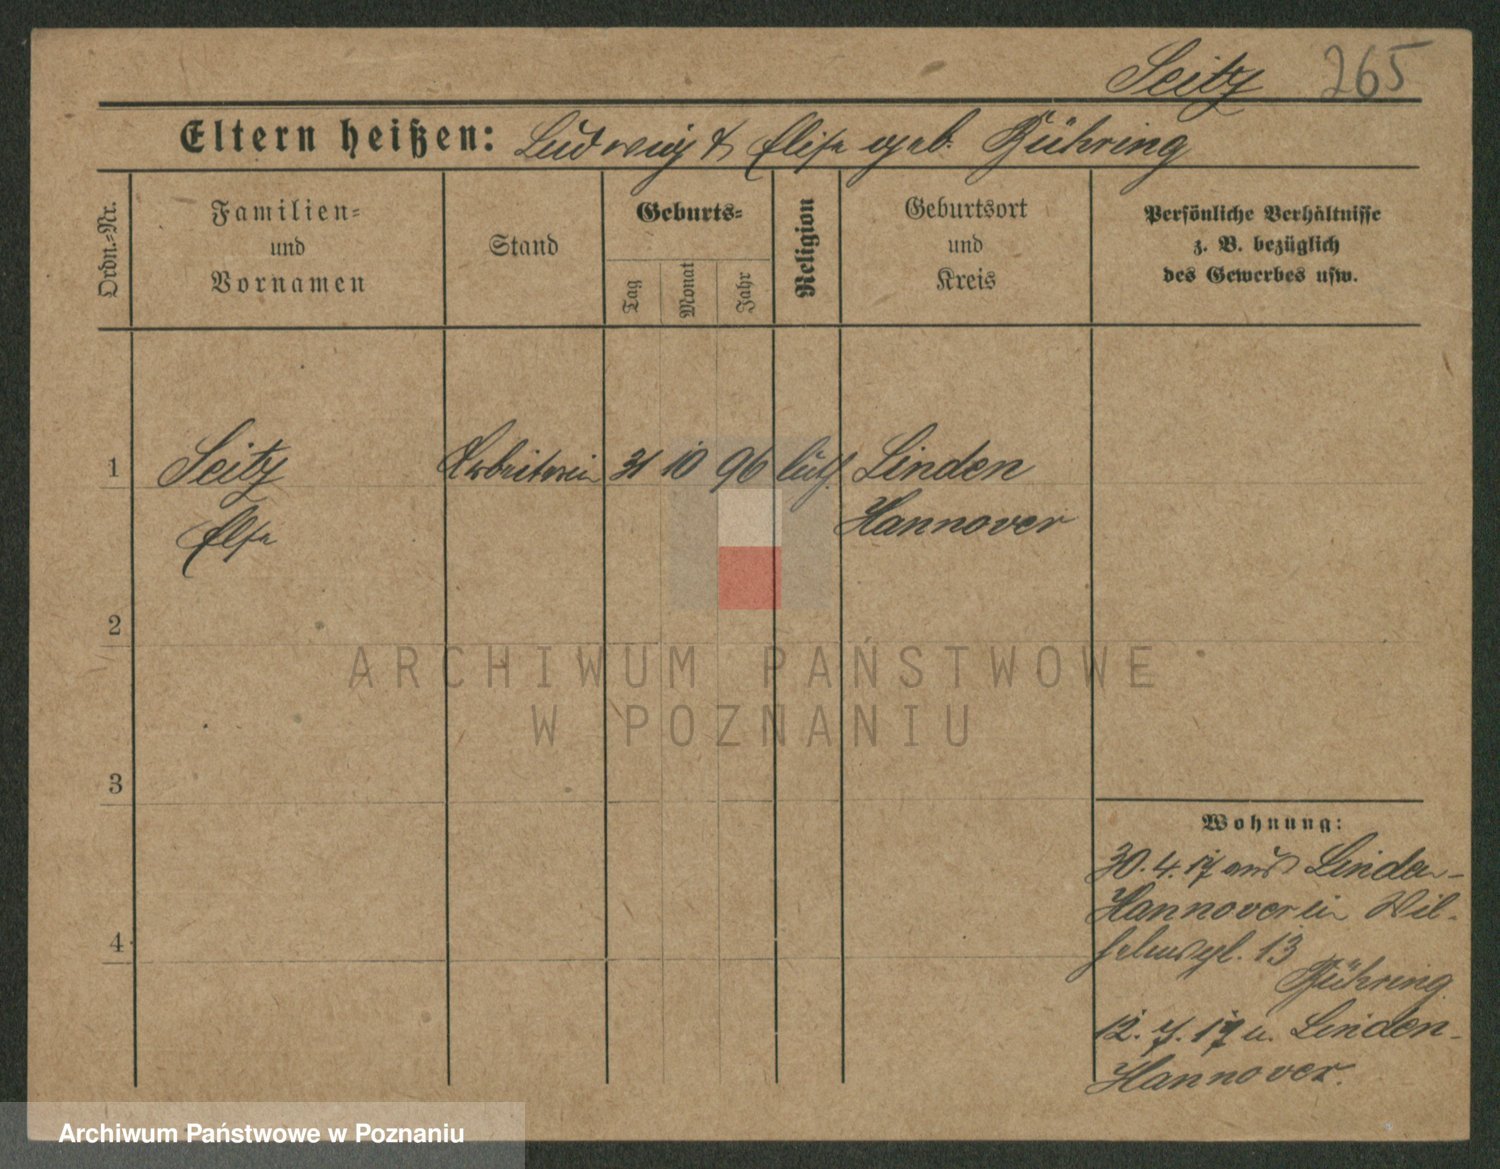 Seitz 265
Eltern heißen: Ludwig & Else geb. Bühring
Ordn.-Nr.
Familien-
und
Vornamen
Stand
Geburts-
Tag
Monat
Jahr
Religion
Geburtsort
und
Kreis
Persönliche Verhältnisse
z. B. bezüglich
des Gewerbes usw.
1 Seitz Arbeiterin 31 10 96 luth. Linden
Else Hannover
2
3
4
Wohnung:
30.4.17 aus Linden-
Hannover in Wil-
13
Bühring
12.7.17 n. Linden-
Hannover.
ARCHIWUM PAŃSTWOWE
W POZNANIU
Archiwum Państwowe w Poznaniu